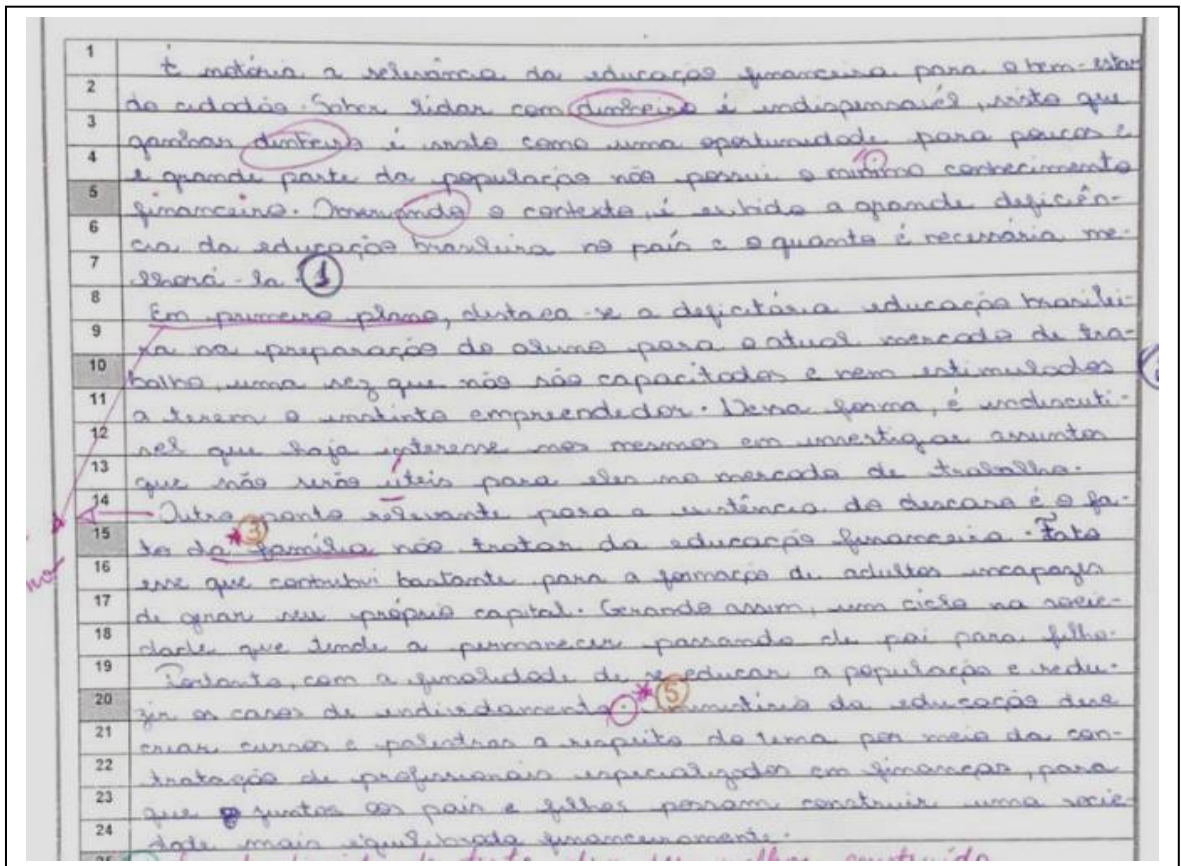 1 É notória a relevância da educação financeira para o bem-estar
2 do cidadão. Saber lidar com dinheiro é indispensável, visto que
3 ganhar dinheiro é visto como uma oportunidade para poucos e
4 a grande parte da população não possui o mínimo conhecimento
5 financeiro. o contexto, é exibido a grande deficiên-
6 cia da educação brasileira no país e o quanto é necessária me-
7 lhorá-la. 1
8 Em primeiro plano, destaca-se a deficitária educação brasilei-
9 ra na preparação do aluno para o atual mercado de tra-
10 balho, uma vez que não são capacitados e nem estimulados
11 a terem o instinto empreendedor. Dessa forma, é indiscutí-
12 vel que haja interesse nos mesmos em investigar assuntos
13 que não serão úteis para eles no mercado de trabalho.
14 Outro ponto relevante para a existência do descaso é o fa-
15 to da família não tratar da educação financeira. Fato
*3
16 esse que contribui bastante para a formação de adultos incapazes
17 de gerar seu próprio capital. Gerando assim, um ciclo na socie-
18 dade que tende a permanecer passando de pai para filho.
19 Portanto, com a finalidade de reeducar a população e redu-
20 zir os casos de endividamento. ministério da educação deve
*5
21 criar cursos e palestras a respeito do tema por meio da con-
22 tratação de profissionais especializados em finanças, para
23 que juntos os pais e filhos possam construir uma socie-
24 dade mais equilibrada financeiramente.